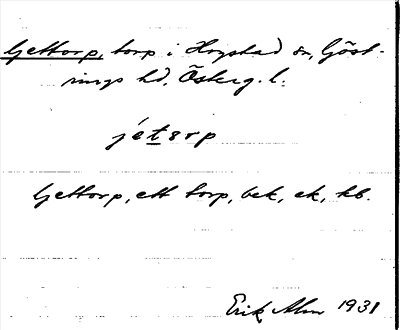 Gettorp, torp i Hogstad sn, Göst-
rings hd, Österg. l.
jétorp
Gettorp, ett torp, bek, ek, kb.
Erik Alm 1931